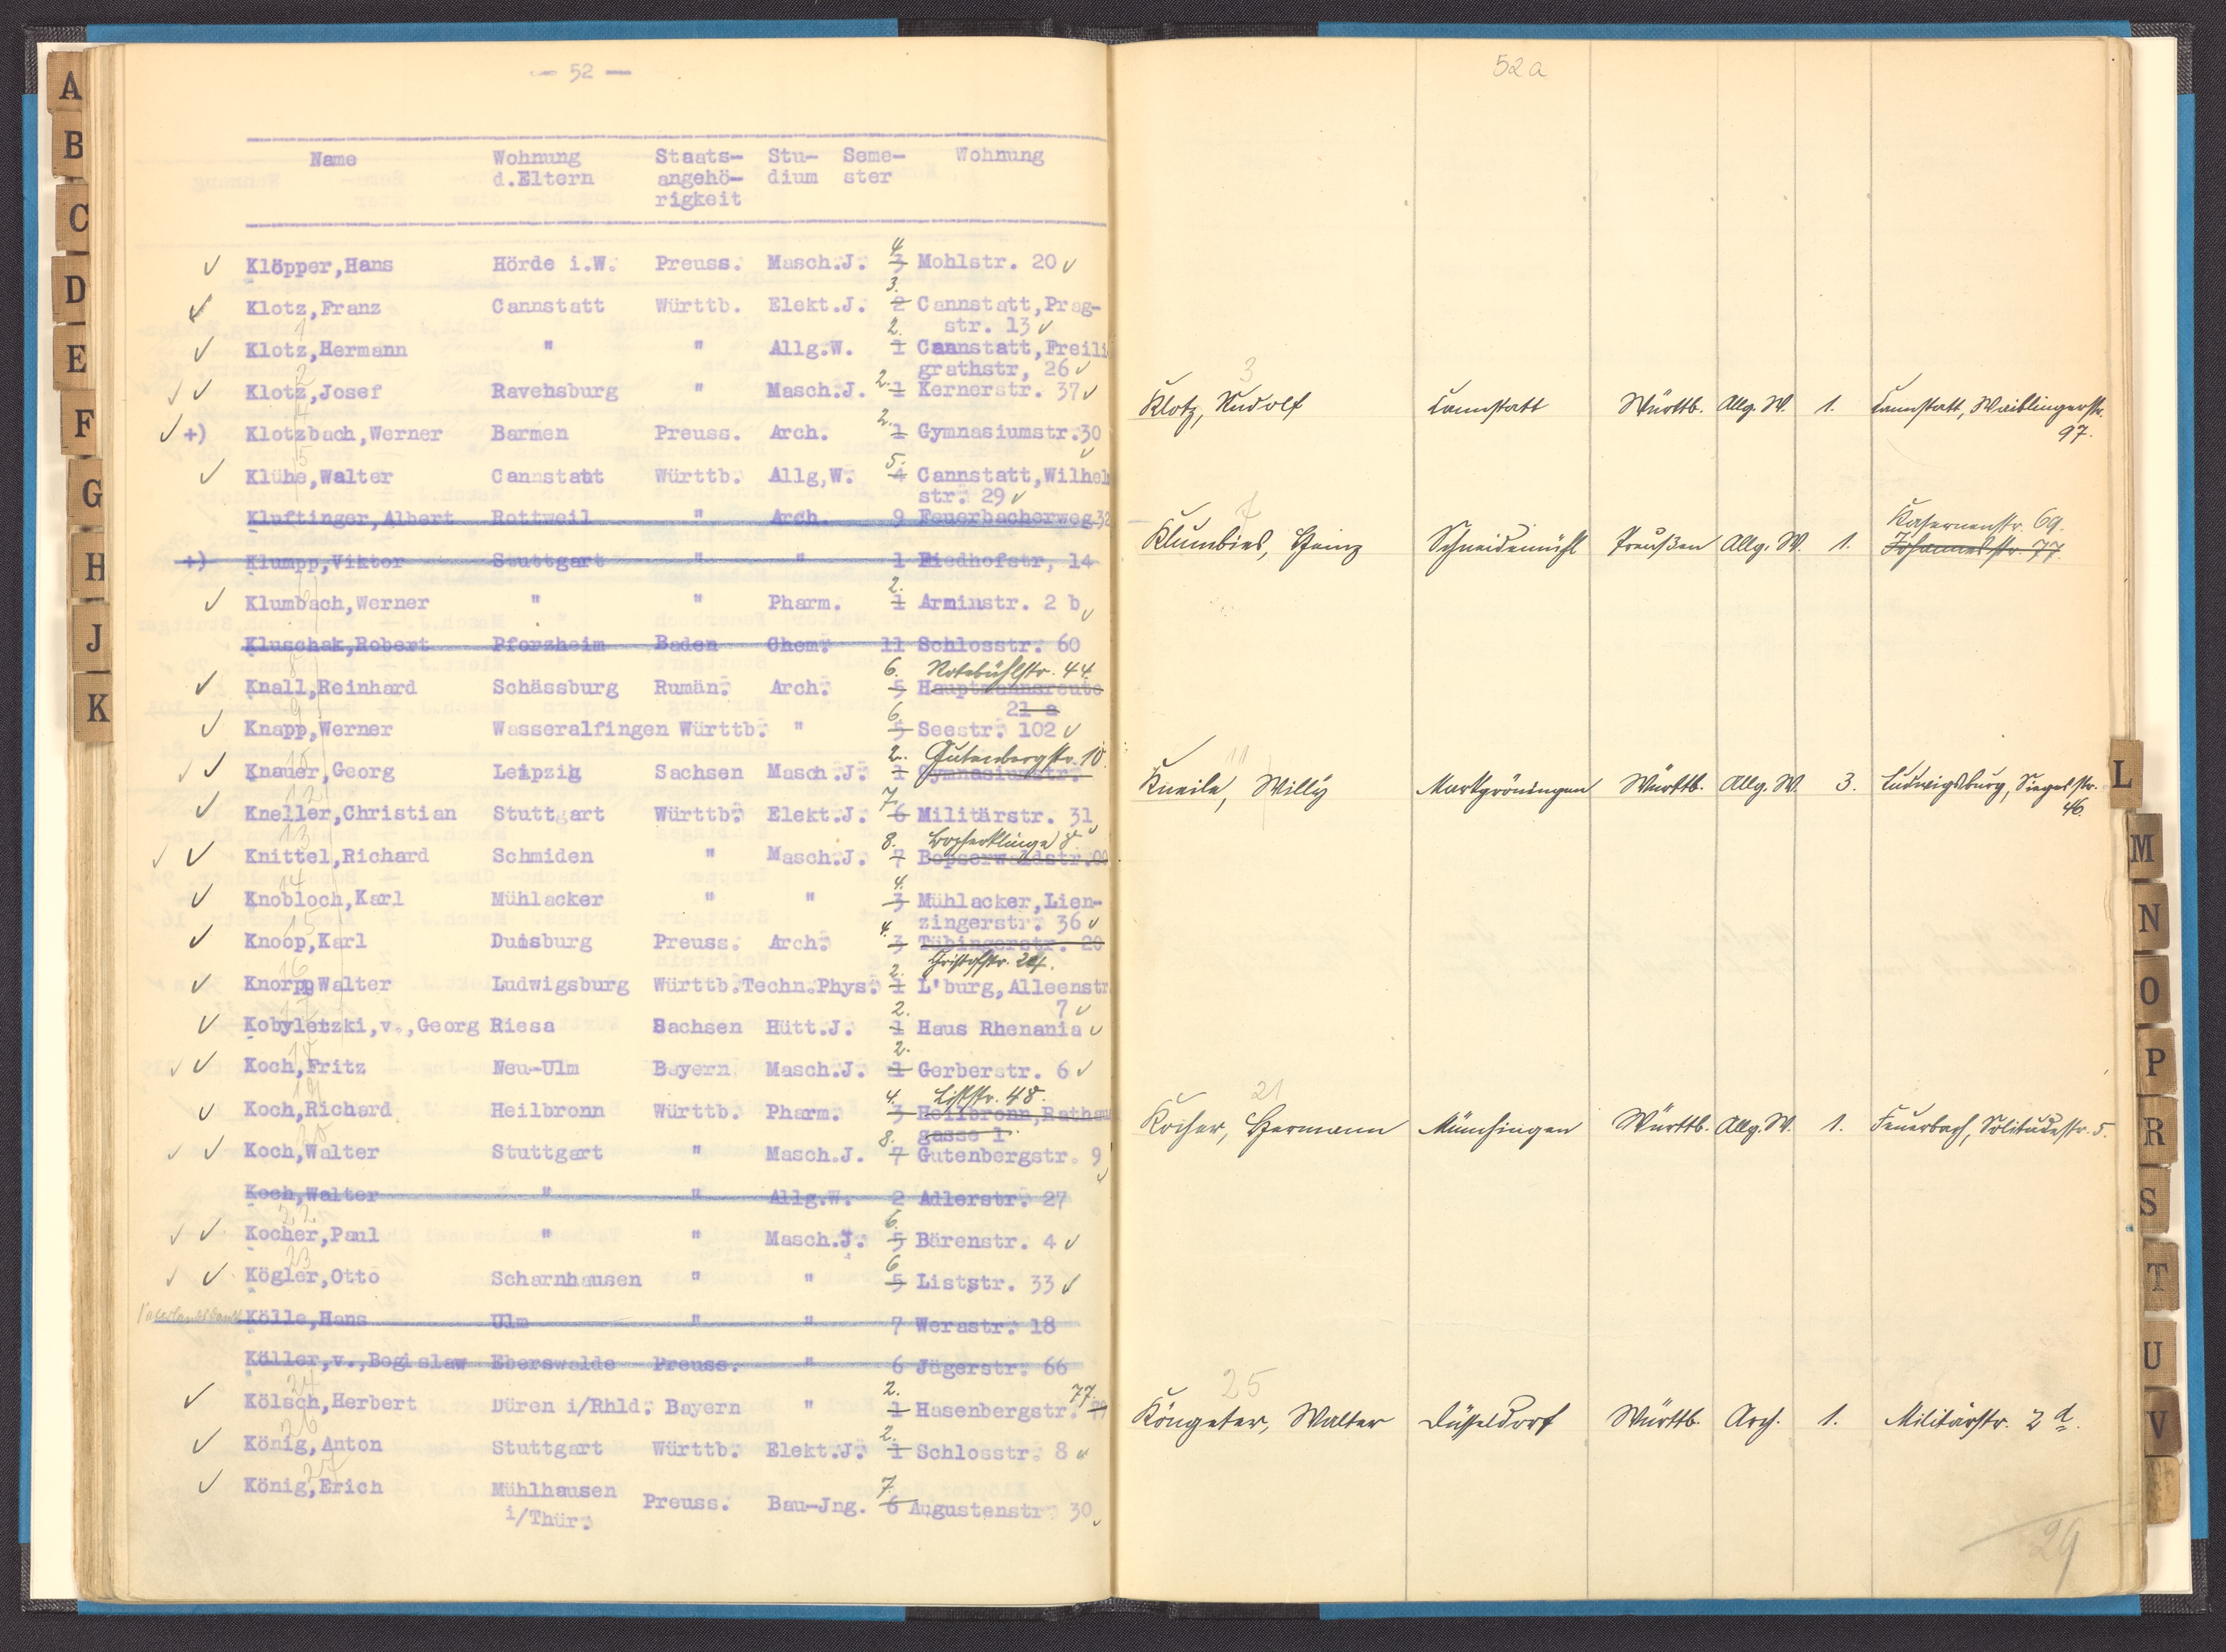 — 52 —
Name Wohnung Staats- Stu- Seme- Wohnung
d.Eltern angehö- dium ster
rigkeit
4.
✓ Klöpper,Hans Hörde i.W. Preuss. Masch.J. 3 Mohlstr. 20 ✓
3.
✓ Klotz,Franz Cannstatt Württb. Elekt.J. 2 Cannstatt,Prag-
1 2. str. 13 ✓
✓ Klotz,Hermann " " Allg.W. 1 Cannstatt,Freili
2 grathstr, 26 ✓
✓ ✓ Klotz,Josef Ravensburg " Masch.J. 2. 1 Kernerstr. 37 ✓
4 2.
✓ +) Klotzbach,Werner Barmen Preuss. Arch. 1 Gymnasiumstr.30 ✓
5 5.
✓ Klühe,Walter Cannstatt Württb. Allg,W. 4 Cannstatt,Wilhelm
str. 29 ✓
Kluftinger,Albert Rottweil " Arch. 9 Feuerbacherweg 32
+) Klumpp,Viktor Stuttgart " " 1 Riedhofstr, 14
2.
✓ Klumbach,Werner " " Pharm. 1 Arminstr. 2 b ✓
Kluschak,Robert Pforzheim Baden Chem. 11 Schlosstr. 60
8 6. Rotebühlstr. 44.
✓ Knall,Reinhard Schässburg Rumän. Arch. 5 Hauptmannsreute
9 6. 21 a
✓ Knapp,Werner Wasseralfingen Württb. " 5 Seestr. 102 ✓
10 2. Gutenbergstr. 10.
✓ ✓ Knauer,Georg Leipzig Sachsen Masch.J. 1 Gymnasiumstr.
12 7.
✓ Kneller,Christian Stuttgart Württb. Elekt.J. 6 Militärstr. 31 ✓
13 8. Bopserklinge 8.
✓ ✓ Knittel,Richard Schmiden " Masch.J. 7 Bopserwaldstr.
14 4.
✓ Knobloch,Karl Mühlacker " " 3 Mühlacker,Lien-
15 zingerstr. 36 ✓
✓ Knoop,Karl Duisburg Preuss. Arch. 4. 3 Tübingerstr. 20
16 2. Christofstr.
✓ Knorpp,Walter Ludwigsburg Württb.Techn.Phys. 1 L'burg,Alleenstr
17 2. 7 ✓
✓ Kobyletzki,v.,Georg Riesa Sachsen Hütt.J. 1 Haus Rhenania ✓
18 2.
✓ ✓ Koch,Fritz Neu-Ulm Bayern Masch.J. 1 Gerberstr. 6 ✓
19 4. Liststr. 48.
✓ Koch,Richard Heilbronn Württb. Pharm. 3 Heilbronn,Rathau
20 8. gasse 1.
✓ ✓ Koch,Walter Stuttgart " Masch.J. 7 Gutenbergstr. 9 ✓
Koch,Walter " " Allg.W. 2 Adlerstr. 27
22 6.
✓ ✓ Kocher,Paul " " Masch.J. 5 Bärenstr. 4 ✓
23 6
✓ ✓ Kögler,Otto Scharnhausen " " 5 Liststr. 33 ✓
Kölle,Hans Ulm " " 7 Werastr. 18
Köller,v.,Bogislaw Eberswalde Preuss. " 6 Jägerstr. 66
24 2. 77.
✓ Kölsch,Herbert Düren i/Rhld. Bayern " 1 Hasenbergstr. 79
26 2.
✓ König,Anton Stuttgart Württb. Elekt.J. 1 Schlosstr. 8 ✓
27 7.
✓ König,Erich Mühlhausen Preuss. Bau-Jng. 6 Augustenstr 30 ✓
i/Thür.
52a
3
Klotz, Rudolf Cannstatt Württb. Allg. W. 1. Cannstatt, Waiblingerstr.
97.
7 Kasernenstr. 69.
Klumbies, Heinz Schneidemühl Preußen Allg. W. 1. Johannesstr. 77.
11
Kneile, Willy Markgröningen Württb. Allg. W. 3. Ludwigsburg, Siegesstr.
46.
21
Kocher, Hermann Münsingen Württb. Allg. W. 1. Feuerbach, Solitudestr. 5.
25
Köngeter, Walter Düsseldorf Württb. Arch. 1. Militärstr. 2 d.
29
A
B
C
D
E
F
G
H
J
K
L
M
N
O
P
R
S
T
U
V